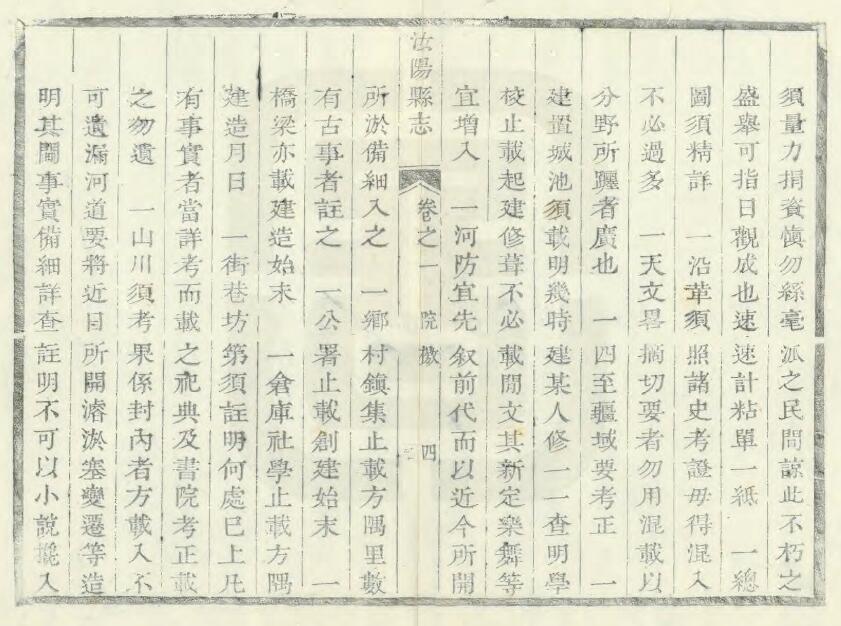 須量力捐資慎勿絲毫派之民間諒此不朽之
盛舉可指日觀成也速速計粘單一紙　一總
圖須精詳　一沿革須照諸史考證毋得混入
不必過多　一天文畧摘切要者勿用混載以
分野所躔者廣也　一四至疆域要考正　一
建置城池須載明幾時建某人修一一查明學
校止載起建修葺不必載閒文其新定樂舞等
宜增入　一河防宜先叙前代而以近今所開
汝陽縣志　卷之一　院檄　四
所淤備細入之　一鄉村鎮集止載方隅里數
有古事者註之　一公署止載創建始末　一
橋梁亦載建造始末　一倉庫社學止載方隅
建造月日　一街巷坊第須註明何處已上凡
有事實者當詳考而載之祀典及書院考正載
之勿遺　一山川須考果係封內者方載入不
可遺漏河道要將近日所開濬淤塞變遷等造
明其間事實備細詳查註明不可以小說攙入